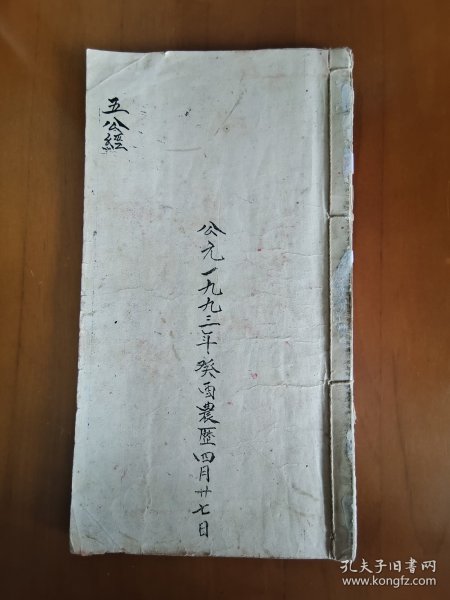 五公經
公元一九九三年癸酉農歷四月廿七日
孔夫子旧书网
www.kongfz.com